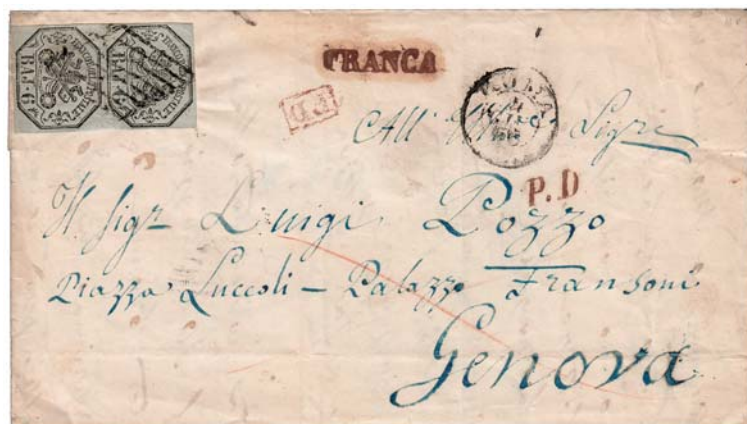 BAJ. 6 BAJ. 6
FRANCA
P.D.
ROMA
All' Sigre
P.D
Il Sigr Luigi Pozzo
Piazza Luccoli – Palazzo Fransoni
Genova